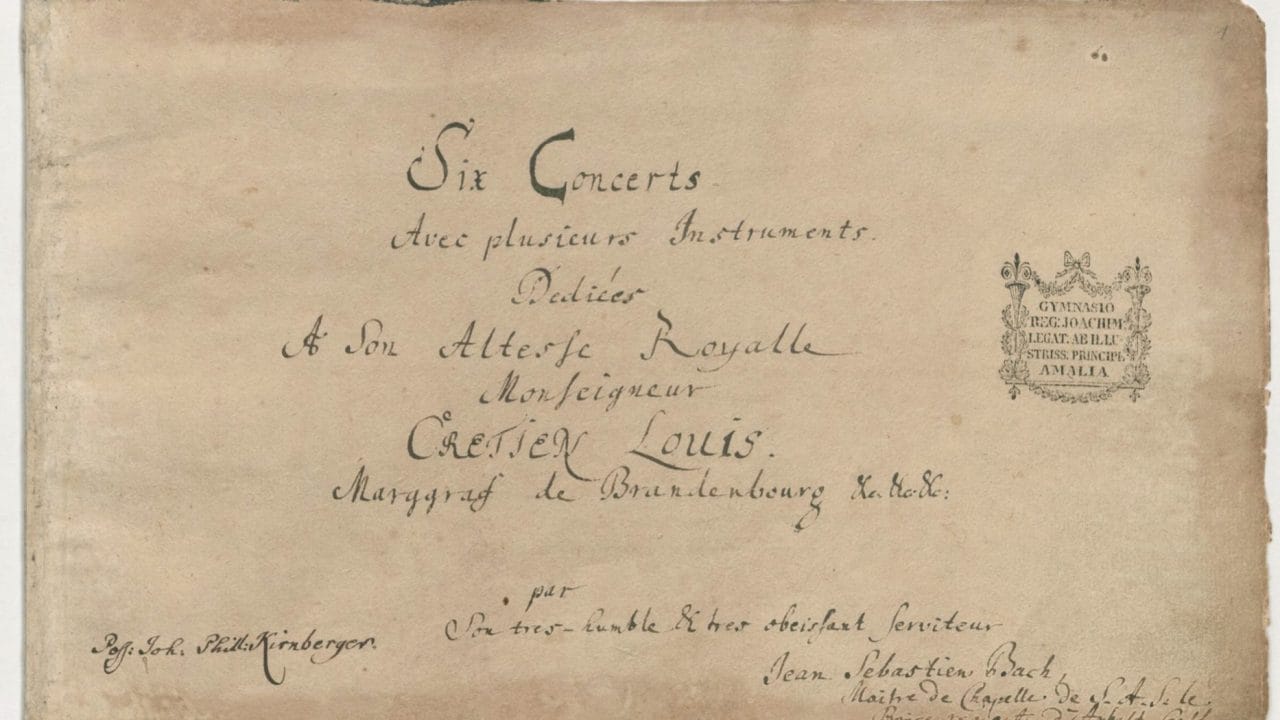 Six Concerts
Avec plusieurs Instruments.
Dediées
A Son Altesse Royalle
Monseigneur
CRETIEN LOUIS.
Marggraf de Brandenbourg &c. &c. &c:
par
Son tres-humble & tres obeissant serviteur
Jean Sebastien Bach,
Maitre de Chapelle de S. A. S. le
Poss: Joh: Phill: Kirnberger.
GYMNASIO
REG: JOACHIM
LEGAT: AB ILLU-
STRISS. PRINCIPE
AMALIA
1